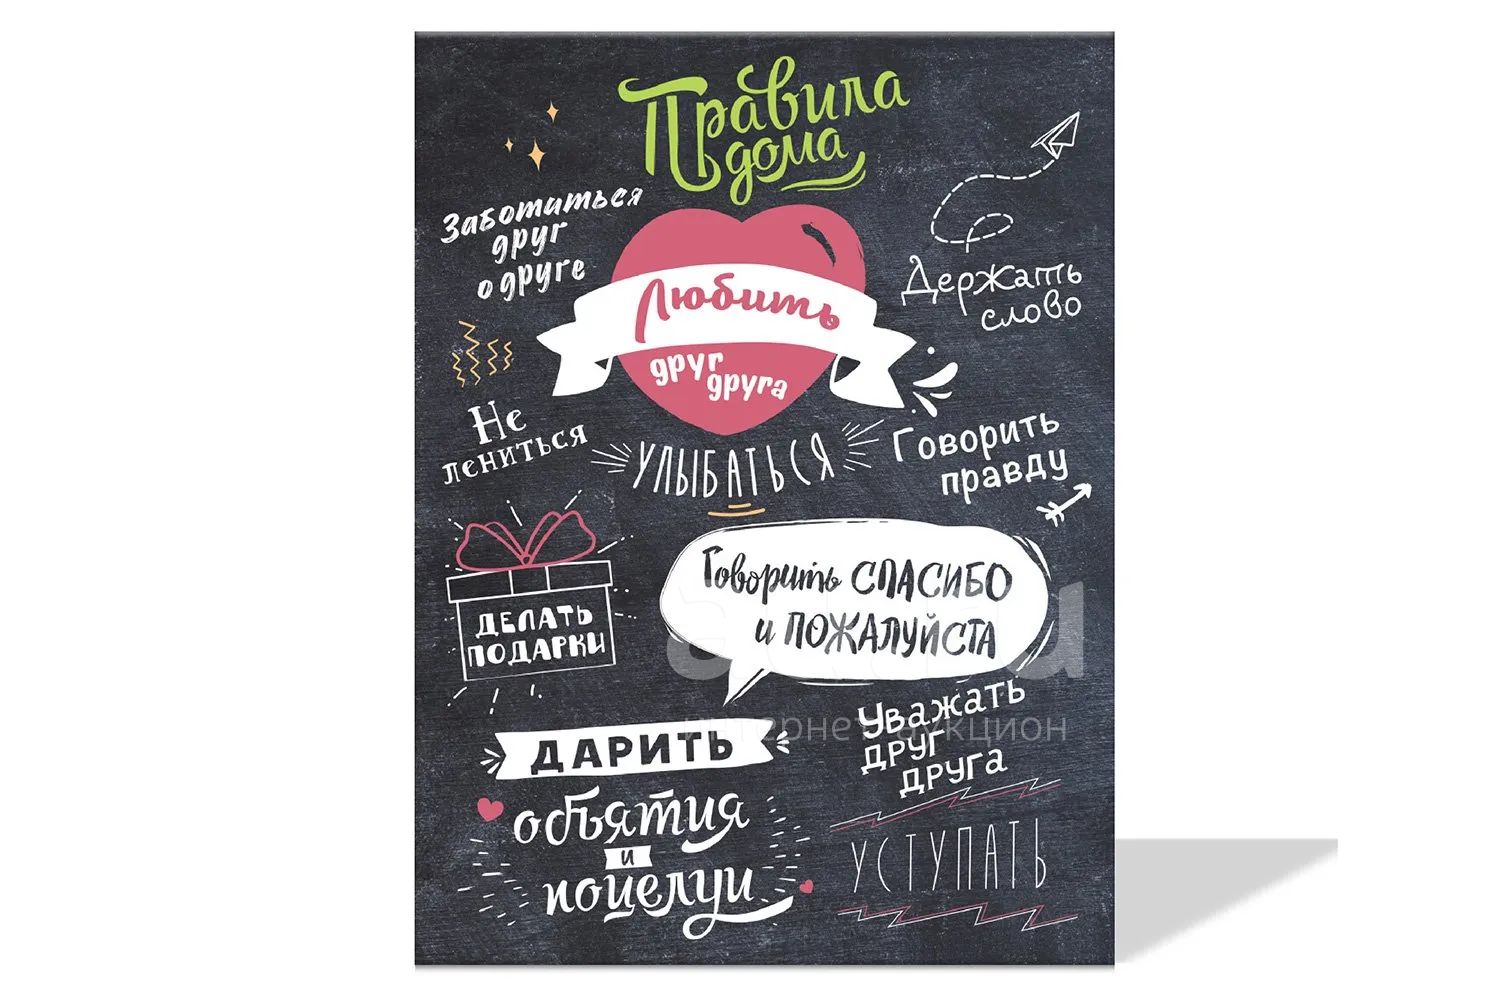 Правила
дома
Заботиться
друг
о друге
Любить
друг
друга
Держать
слово
Не
лениться
УЛЫБАТЬСЯ
Говорить
правду
ДЕЛАТЬ
ПОДАРКИ
Говорить СПАСИБО
и ПОЖАЛУЙСТА
Уважать
друг
друга
ДАРИТЬ
объятия
и
поцелуи
УСТУПАТЬ
интернет аукцион